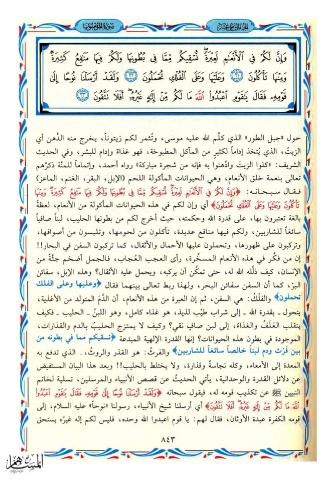 وَإِنَّ لَكُمْ فِي الْأَنْعَامِ لَعِبْرَةً نُسْقِيكُمْ مِمَّا فِي بُطُونِهَا وَلَكُمْ فِيهَا مَنَافِعُ كَثِيرَةٌ
وَمِنْهَا تَأْكُلُونَ ﴿٢١﴾ وَعَلَيْهَا وَعَلَى الْفُلْكِ تُحْمَلُونَ ﴿٢٢﴾ وَلَقَدْ أَرْسَلْنَا نُوحًا إِلَى
قَوْمِهِ فَقَالَ يَا قَوْمِ اعْبُدُوا اللَّهَ مَا لَكُمْ مِنْ إِلَهٍ غَيْرُهُ أَفَلَا تَتَّقُونَ ﴿٢٣﴾
حول «جبل الطور» الذي كلَّم الله عليه موسى، وتُثمر لكم زيتوناً، يخرج منه الدُّهن أي
الزيتُ، الذي يُتخذ إداماً لكثيرٍ من المآكل المطبوخة، فهو غذاءٌ وإدام للبشر، وفي الحديث
الشريف: «كلوا الزيتَ وادَّهنوا به فإنه من شجرةٍ مباركة» رواه أحمد، وإتماماً للمنَّة ذكَّرهم
تعالى بنعمة خلق الأنعام، وهي الحيوانات المأكولة اللحم (الإبل، البقر، الغنم، الماعز)
فقال سبحانه: ﴿وَإِنَّ لَكُمْ فِي الْأَنْعَامِ لَعِبْرَةً نُسْقِيكُمْ مِمَّا فِي بُطُونِهَا وَلَكُمْ فِيهَا مَنَافِعُ كَثِيرَةٌ وَمِنْهَا
تَأْكُلُونَ وَعَلَيْهَا وَعَلَى الْفُلْكِ تُحْمَلُونَ﴾ أي وإن لكم في هذه الحيوانات المأكولة من الأنعام، لعظةً
بالغة تعتبرون بها، على قدرة الله وحكمته، حيث أخرج لكم من بطونها الحليب، لبناً صافياً
سائغاً للشاربين، ولكم فيها منافع عديدة، تأكلون من لحومها، وتلبسون من أصوافها،
وتركبون على ظهورها، وتحملون عليها الأحمال والأثقال، كما تركبون السفن في البحار!!
إن من فكَّر في هذه الأنعام المسخَّرة، رأى العجب العُجاب، فالجمل أضخم جثَّة من
الإنسان، كيف ذلَّله الله له، حتى تمكَّن أن يركبه، ويحمل عليه الأثقال؟ وهذه الإبل، سفائن
البرّ، كما أن السفن سفائن البحر، ولهذا ربط تعالى بينهما فقال ﴿وعليها وعلى الفلك
تحملون﴾ والفُلْكُ: هي السفن، ثم إن العبرة من هذه الأنعام، أن الدَّم المتولد من الأغذية،
يتحول ـ بقدرة الله ـ إلى شراب طيِّب لذيذ، هو غذاء كامل، وهو اللبنُ ـ الحليب ـ فكيف
ينقلب العَلَفُ والغذاءُ، إلى لبن صافٍ نقي؟ وكيف لا يمتزج الحليبُ بالدم والقذارات،
الموجودة في بطون هذه الحيوانات؟ إنها القدرة الإلهية المبدعة ﴿نسقيكم مما في بطونه من
بين فرْث ودم لبناً خالصاً سائغاً للشاربين﴾ والفرثُ: هو القذر والروثُ، الذي تدفع به
المعدة إلى الأمعاء، وكله نجاسةٌ وقذارة، ولا يختلط بالحليب!! وبعد هذا البيان المستفيض
عن دلائل القدرة والوحدانية، يأتي الحديثُ عن قصص الأنبياء والمرسلين، تسليةً لخاتم
النبيين ﷺ عن تكذيب قومه له، فيقول سبحانه ﴿وَلَقَدْ أَرْسَلْنَا نُوحًا إِلَى قَوْمِهِ فَقَالَ يَا قَوْمِ اعْبُدُوا
اللَّهَ مَا لَكُمْ مِنْ إِلَهٍ غَيْرُهُ أَفَلَا تَتَّقُونَ﴾ أي أرسلنا شيخ الأنبياء، رسولنا «نوحاً» عليه السلام، إلى
قومه الكفرة عبدة الأوثان، فقال لهم: يا قوم اعبدوا الله وحده، فليس لكم إله غيره يستحق
٨٤٣